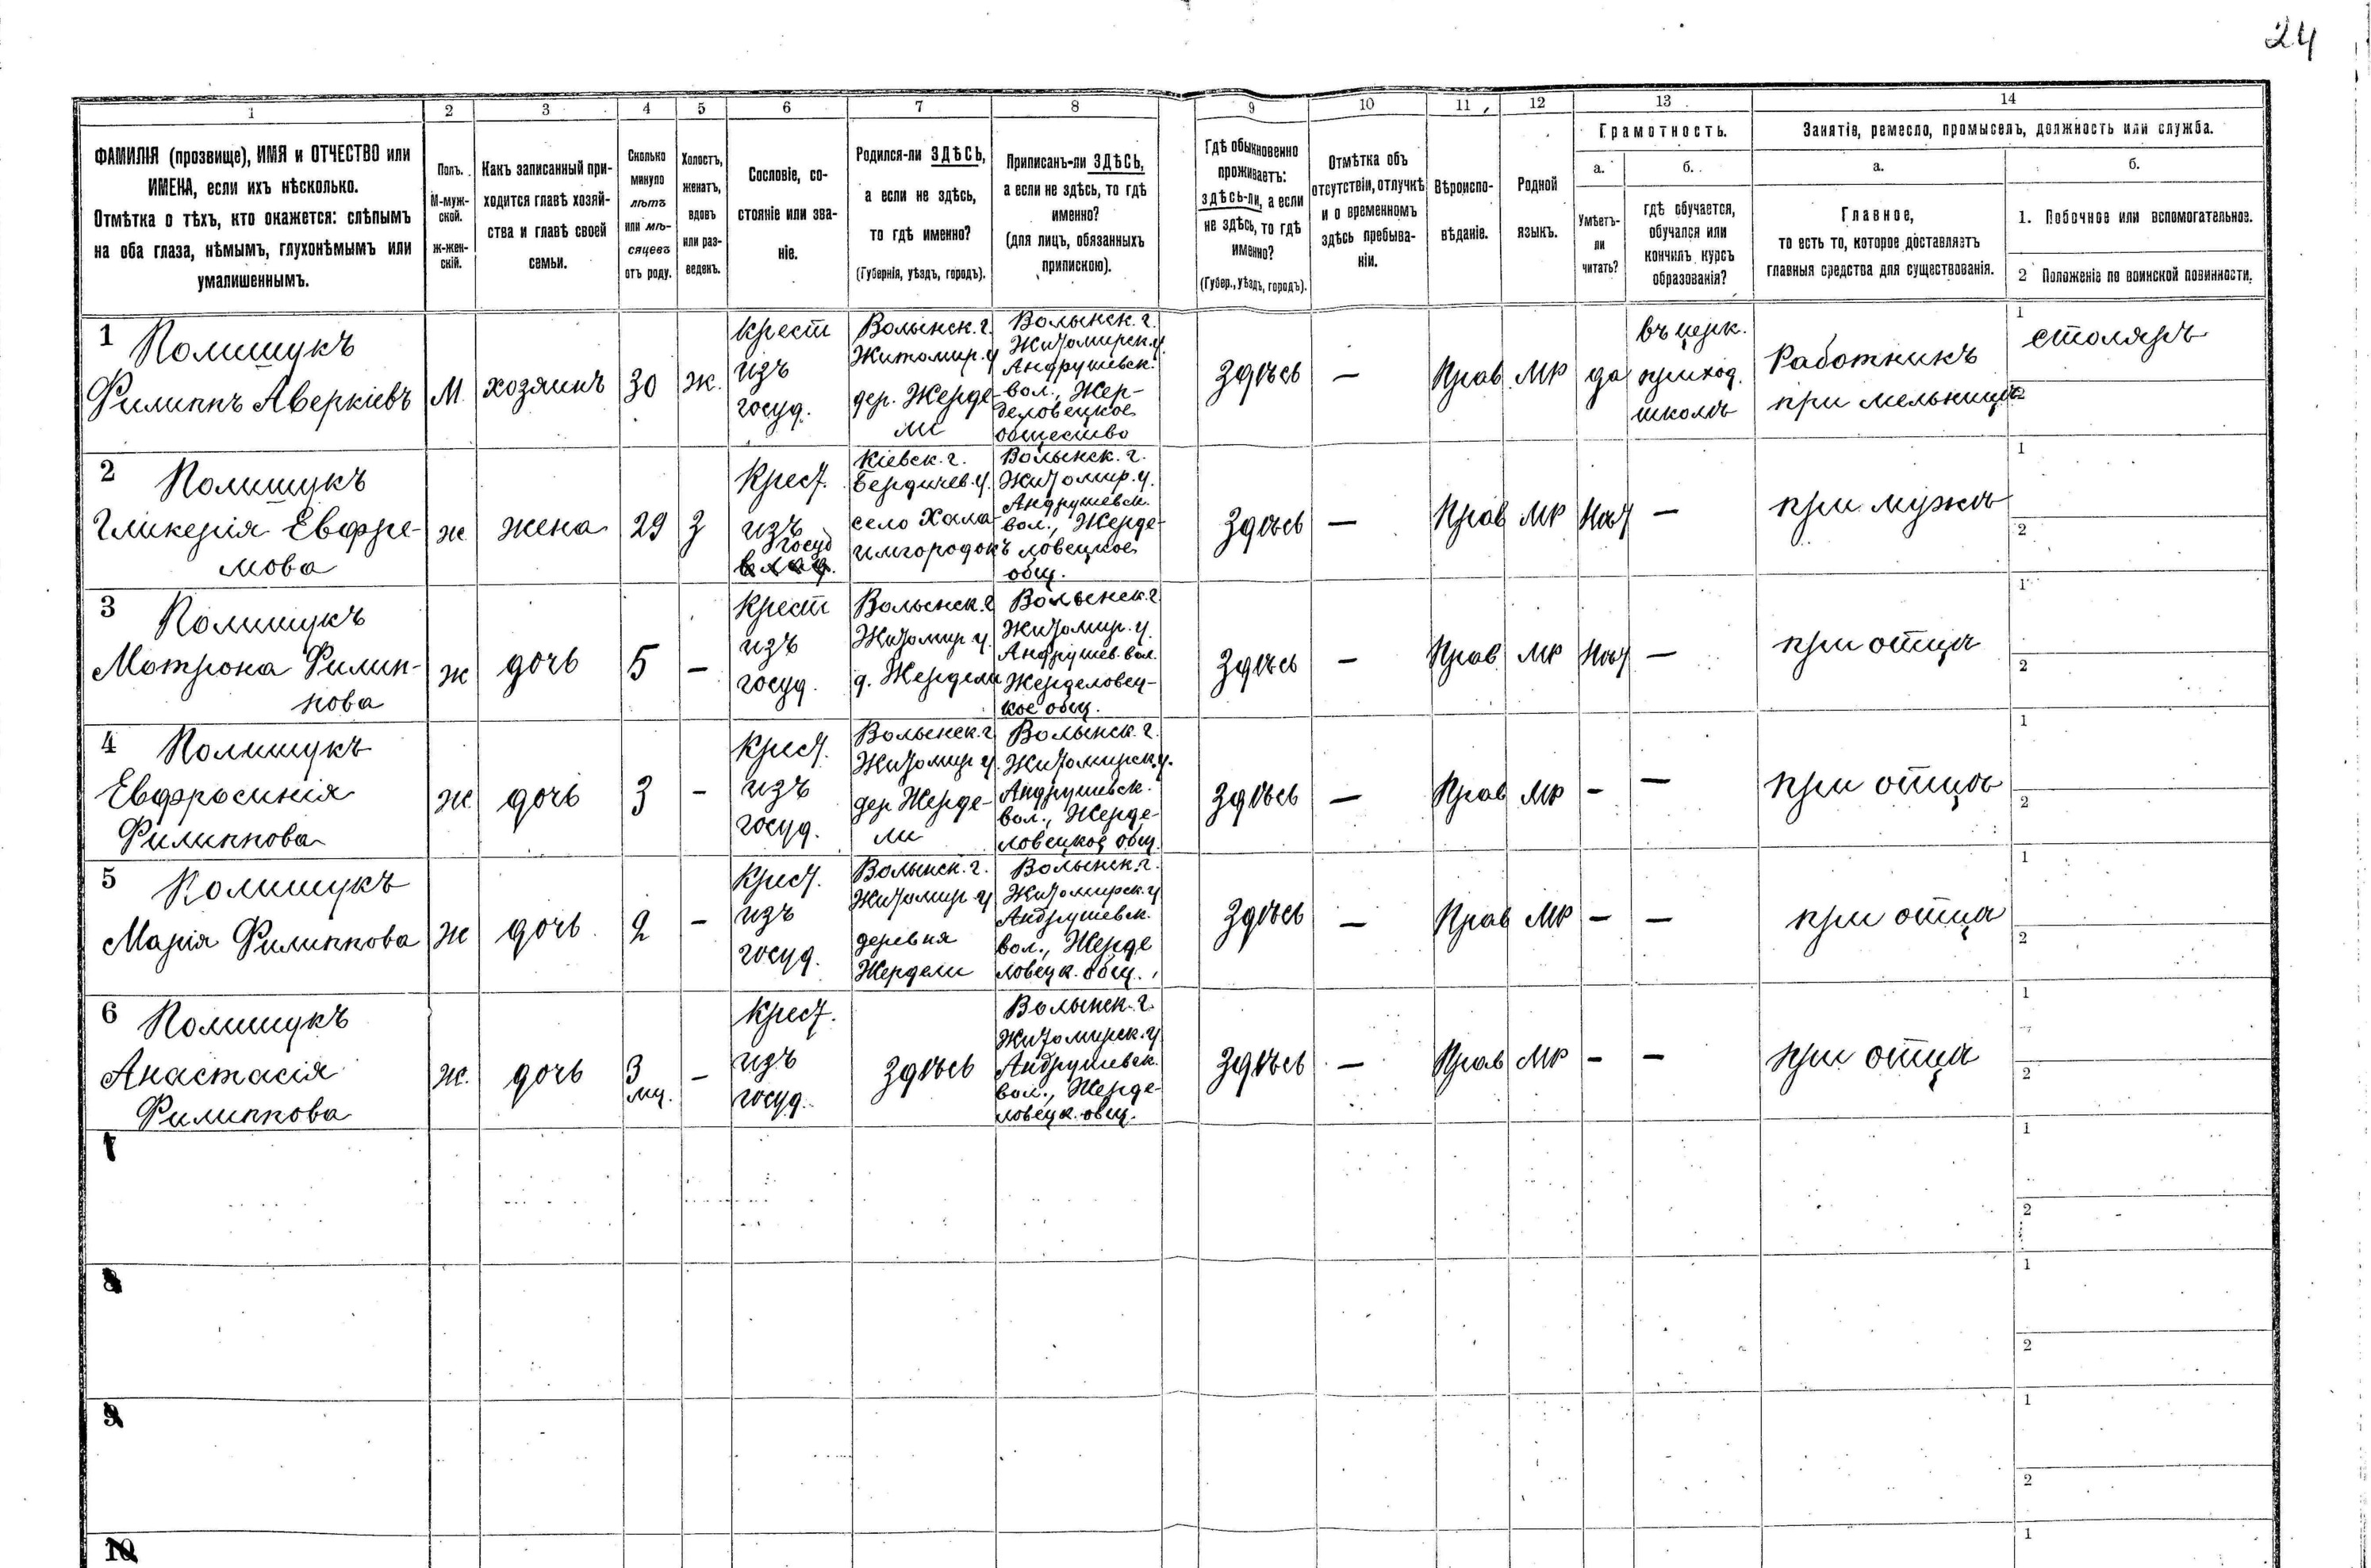 24
1 2 3 4 5 6 7 8 9 10 11 12 13 14
ФАМИЛІЯ (прозвище), ИМЯ и ОТЧЕСТВО или
ИМЕНА, если ихъ нѣсколько.
Отмѣтка о тѣхъ, кто окажется: слѣпымъ
на оба глаза, нѣмымъ, глухонѣмымъ или
умалишеннымъ.
Полъ.
М-муж-
ской.
ж-жен-
скій.
Какъ записанный при-
ходится главѣ хозяй-
ства и главѣ своей
семьи.
Сколько
минуло
лѣтъ
или мѣ-
сяцевъ
отъ роду.
Холостъ,
женатъ,
вдовъ
или раз-
веденъ.
Сословіе, со-
стояніе или зва-
ніе.
Родился-ли ЗДѢСЬ,
а если не здѣсь,
то гдѣ именно?
(Губернія, уѣздъ, городъ).
Приписанъ-ли ЗДѢСЬ,
а если не здѣсь, то гдѣ
именно?
(для лицъ, обязанныхъ
припискою).
Гдѣ обыкновенно
проживаетъ:
здѣсь-ли, а если
не здѣсь, то гдѣ
именно?
(Губер., уѣздъ, городъ).
Отмѣтка объ
отсутствіи, отлучкѣ
и о временномъ
здѣсь пребыва-
ніи.
Вѣроиспо-
вѣданіе.
Родной
языкъ.
Грамотность.
а.
Умѣетъ-
ли
читать?
б.
гдѣ обучается,
обучался или
кончилъ курсъ
образованія?
Занятіе, ремесло, промыселъ, должность или служба.
а.
Главное,
то есть то, которое доставляетъ
главныя средства для существованія.
б.
1. Побочное или вспомогательное.
2 Положеніе по воинской повинности.
1 Полищукъ
Филиппъ Аверкіевъ
М.
хозяинъ
30
ж.
крест
изъ
госуд.
Волынск. г.
Житомир. у
дер. Жерде-
ли
Волынск. г.
Житомирск. у.
Андрушевск.
вол., Жер-
деловецкое
общество
Здѣсь
—
Прав.
МР
да
въ церк.
приход.
школѣ
Работникъ
при мельницѣ
1
столяръ
2
2 Полищукъ
Гликерія Евфре-
мова
ж
жена
29
З
Крест.
изъ
госуд
Кіевск. г.
Бердичев. у.
село Хала-
имгородокъ
Волынск. г.
Житомир. у.
Андрушевск.
вол., Жерде-
ловецкое
общ.
Здѣсь
—
Прав
МР
Нѣт
—
при мужѣ
1
2
3 Полищукъ
Мотрона Филип-
пова
ж
дочь
5
—
Крест
изъ
госуд.
Волынск. г
Житомир у.
д. Жердели
Волынск. г
Житомир. у.
Андрушев. вол.
Жерделовец-
кое общ.
Здѣсь
—
Прав.
МР
Нѣт
—
при отцѣ
1
2
4 Полищукъ
Евфросинія
Филиппова
ж.
дочь
3
—
Крест.
изъ
госуд.
Волынск. г
Житомир у.
дер Жерде-
ли
Волынск. г.
Житомирск. у.
Андрушевск.
вол., Жерде-
ловецкое общ.
Здѣсь
—
Прав
МР
—
—
при отцѣ
1
2
5 Полищукъ
Марія Филиппова
ж
дочь
2
—
Крест.
изъ
госуд.
Волынск. г.
Житомир у
деревня
Жердели
Волынск. г.
Житомирск. у
Андрушевск.
вол., Жерде
ловецк. общ.
Здѣсь
—
Прав
МР
—
—
при отцѣ
1
2
6 Полищукъ
Анастасія
Филиппова
ж.
дочь
3
мц.
—
Крест.
изъ
госуд.
Здѣсь
Волынск. г.
Житомирск. у
Андрушевск.
вол., Жерде-
ловецк. общ.
Здѣсь
—
Прав
МР
—
—
при отцѣ
1
2
7
1
2
8
1
2
9
1
2
10
1